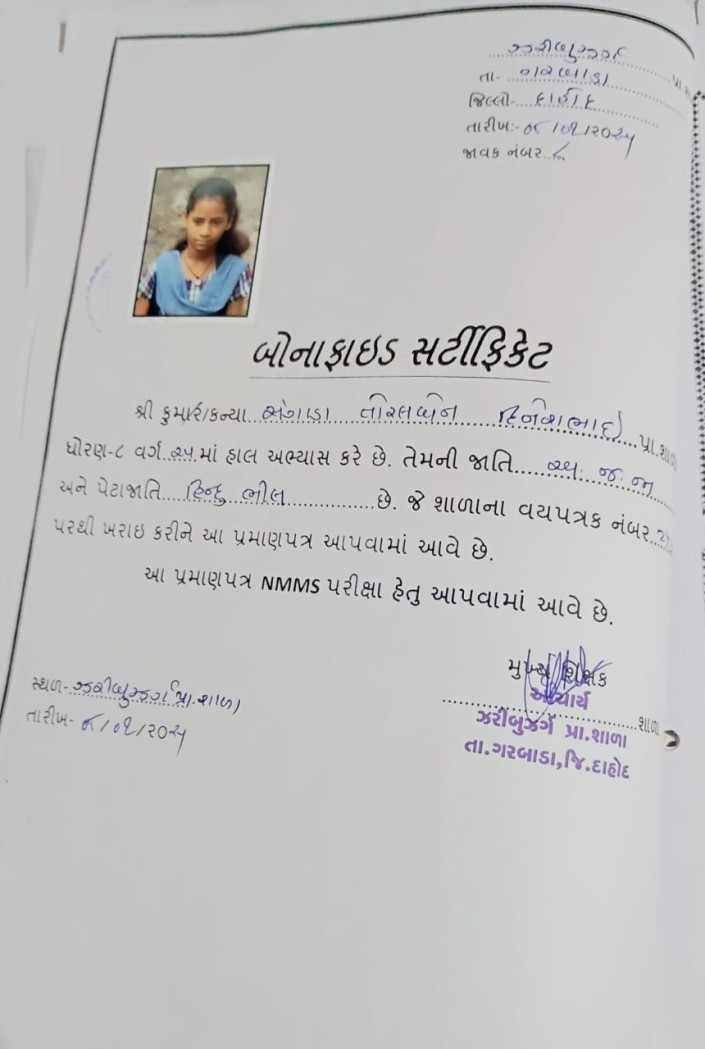 ઝરીબુઝર્ગ
તા- ગરબાડા
જિલ્લો- દાહોદ
તારીખ:- ૦૮/૦૧/૨૦૨૫
જાવક નંબર..
બોનાફાઇડ સર્ટીફિકેટ
શ્રી કુમાર/કન્યા દિનેશભાઇ પ્રા.શાળા
ધોરણ-૮ વર્ગ માં હાલ અભ્યાસ કરે છે. તેમની જાતિ અ. જ. જા
અને પેટાજાતિ હિન્દુ ભીલ છે. જે શાળાના વયપત્રક નંબર
પરથી ખરાઇ કરીને આ પ્રમાણપત્ર આપવામાં આવે છે.
આ પ્રમાણપત્ર NMMS પરીક્ષા હેતુ આપવામાં આવે છે.
મુખ્ય શિક્ષક
આચાર્ય
શાળા
ઝરીબુઝર્ગ પ્રા.શાળા
તા.ગરબાડા,જિ.દાહોદ
સ્થળ- ઝરીબુઝર્ગ પ્રા.શાળા
તારીખ- ૦૮/૦૧/૨૦૨૫